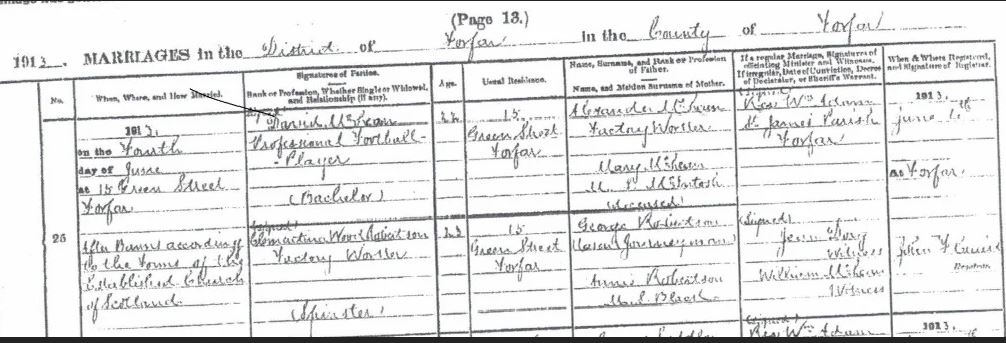 (Page 13.)
1913. MARRIAGES in the District of Forfar in the County of Forfar
No.
When, Where, and How Married.
Signatures of Parties.
Rank or Profession, Whether Single or Widowed, and Relationship (if any).
Age.
Usual Residence.
Name, Surname, and Rank or Profession of Father.
Name, and Maiden Surname of Mother.
If a regular Marriage, Signatures of officiating Minister and Witnesses.
If irregular, Date of Conviction, Decree of Declarator, or Sheriff's Warrant.
When & Where Registered, and Signature of Registrar.
25
1913.
on the Fourth
day of June
at 15 Green Street
Forfar
After Banns according
to the Forms of the
Established Church
of Scotland
(Signed)
David
Professional Football-
Player
(Bachelor)
(Signed)
Clementina Wood Robertson
Factory Worker
(Spinster)
22
15
Green Street
Forfar
15
Green Street
Forfar
Alexander
Factory Worker
Mary
M.S. McIntosh
(deceased)
George Robertson
Journeyman)
Annie Robertson
M.S. Black
(Signed)
Rev. Wm Adam
St James Parish
Forfar
(Signed)
Jean
Witness
William
Witness
1913.
June
At Forfar
John
Registrar
(Signed)
Rev. Wm Adam
1913.